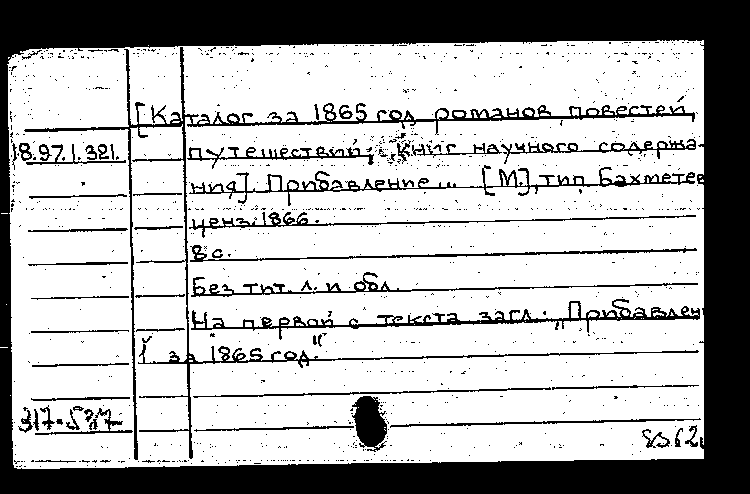 [Каталог за 1865 год романов, повестей,
18.97.1.321. путешествий, книг научного содержа-
ния]. Прибавление ... [М.], тип. Бахметев
ценз. 1866.
8 с.
Без тит. л. и обл.
На первой с текста загл.: „Прибавлен
за 1865 год."